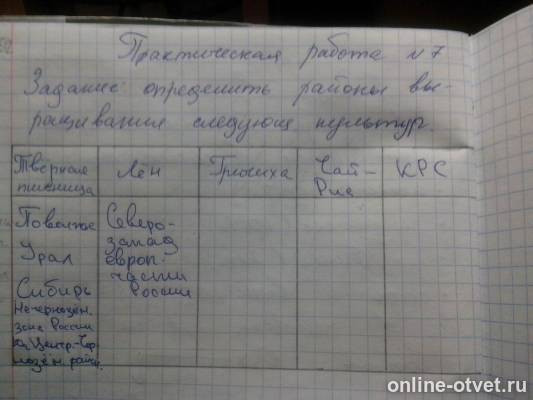 Практическая работа №7
Задание: определить районы вы-
ращивания следующие культур
Твёрдая пшеница
Лён
Гречиха
Чай-
Рис
КРС
Поволжье
Урал
Сибирь
Нечернозём.
зона России
Центр-Чер
нозём. район.
Северо-
запад
европ.
части
России
online-otvet.ru